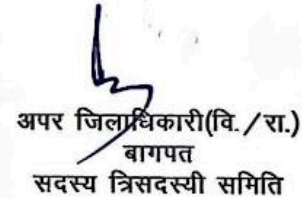 अपर जिलाधिकारी(वि./रा.)
बागपत
सदस्य त्रिसदस्यी समिति